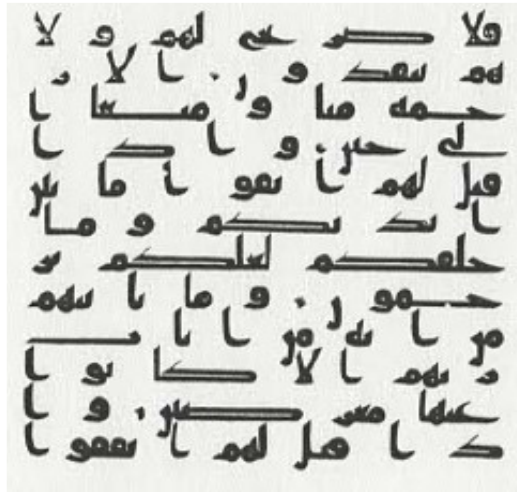 فلا صريخ لهم و لا
هم ينقذو ن ا لا ر
حمة منا و متعا ا
لى حين و ا ذ ا
قيل لهم ا تقو ا ما بين
ا يد يكم و ما
خلفكم لعلكم تر
حمو ن و ما تا تيهم
من ا ية من ا يا ت
ر بهم ا لا كا نو ا
عنها معرضين و ا
ذ ا قيل لهم ا نفقو ا